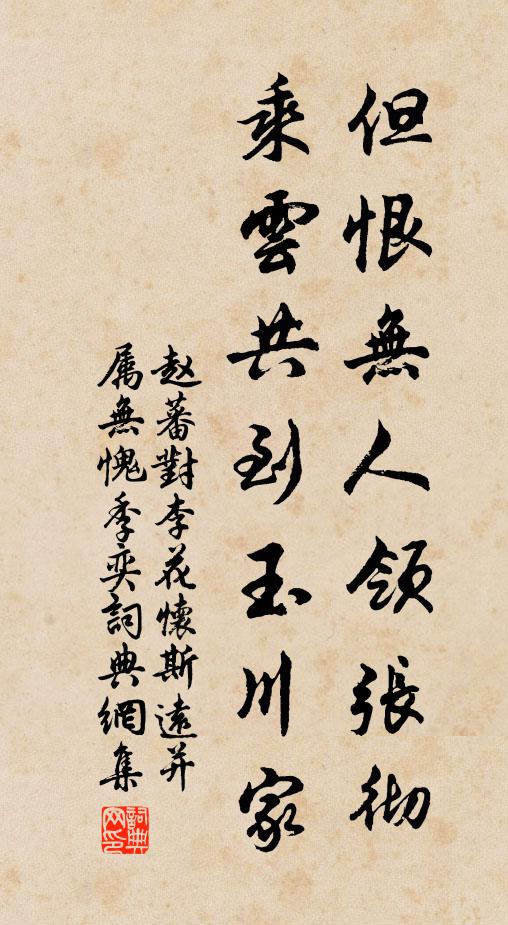 但恨無人領張彻
乘雲共到玉川家
赵蕃對李花懷斯遠并
属無愧季奕詞典網集
詞典网印